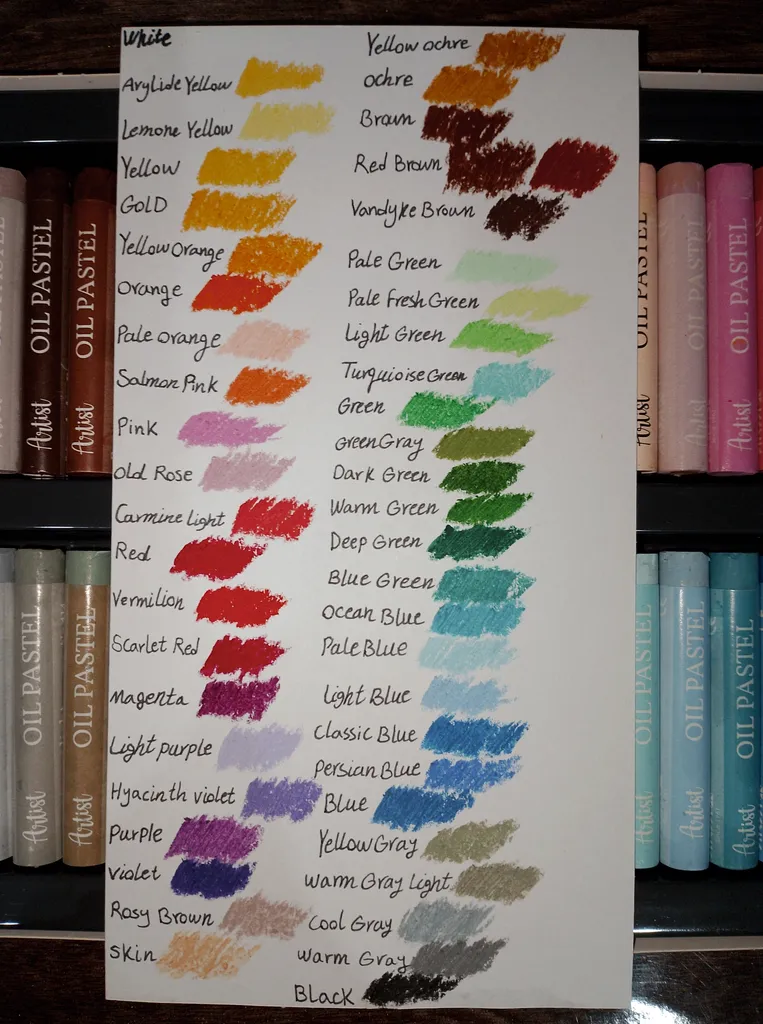 White
Arylide Yellow
Lemone Yellow
Yellow
GOLD
Yellow Orange
Orange
Pale orange
Salmon Pink
Pink
Old Rose
Carmine Light
Red
Vermilion
Scarlet Red
Magenta
Light purple
Hyacinth violet
Purple
violet
Rosy Brown
Skin
Yellow ochre
ochre
Brown
Red Brown
Vandyke Brown
Pale Green
Pale Fresh Green
Light Green
Turquioise Green
Green
Green Gray
Dark Green
Warm Green
Deep Green
Blue Green
Ocean Blue
Pale Blue
Light Blue
Classic Blue
Persian Blue
Blue
Yellow Gray
Warm Gray Light
Cool Gray
Warm Gray
Black
OIL PASTEL
Artist
OIL PASTEL
Artist
OIL PASTEL
Artist
OIL PASTEL
Artist
OIL PASTEL
Artist
OIL PASTEL
Artist
OIL PASTEL
Artist
OIL PASTEL
Artist
OIL PASTEL
Artist
OIL PASTEL
Artist